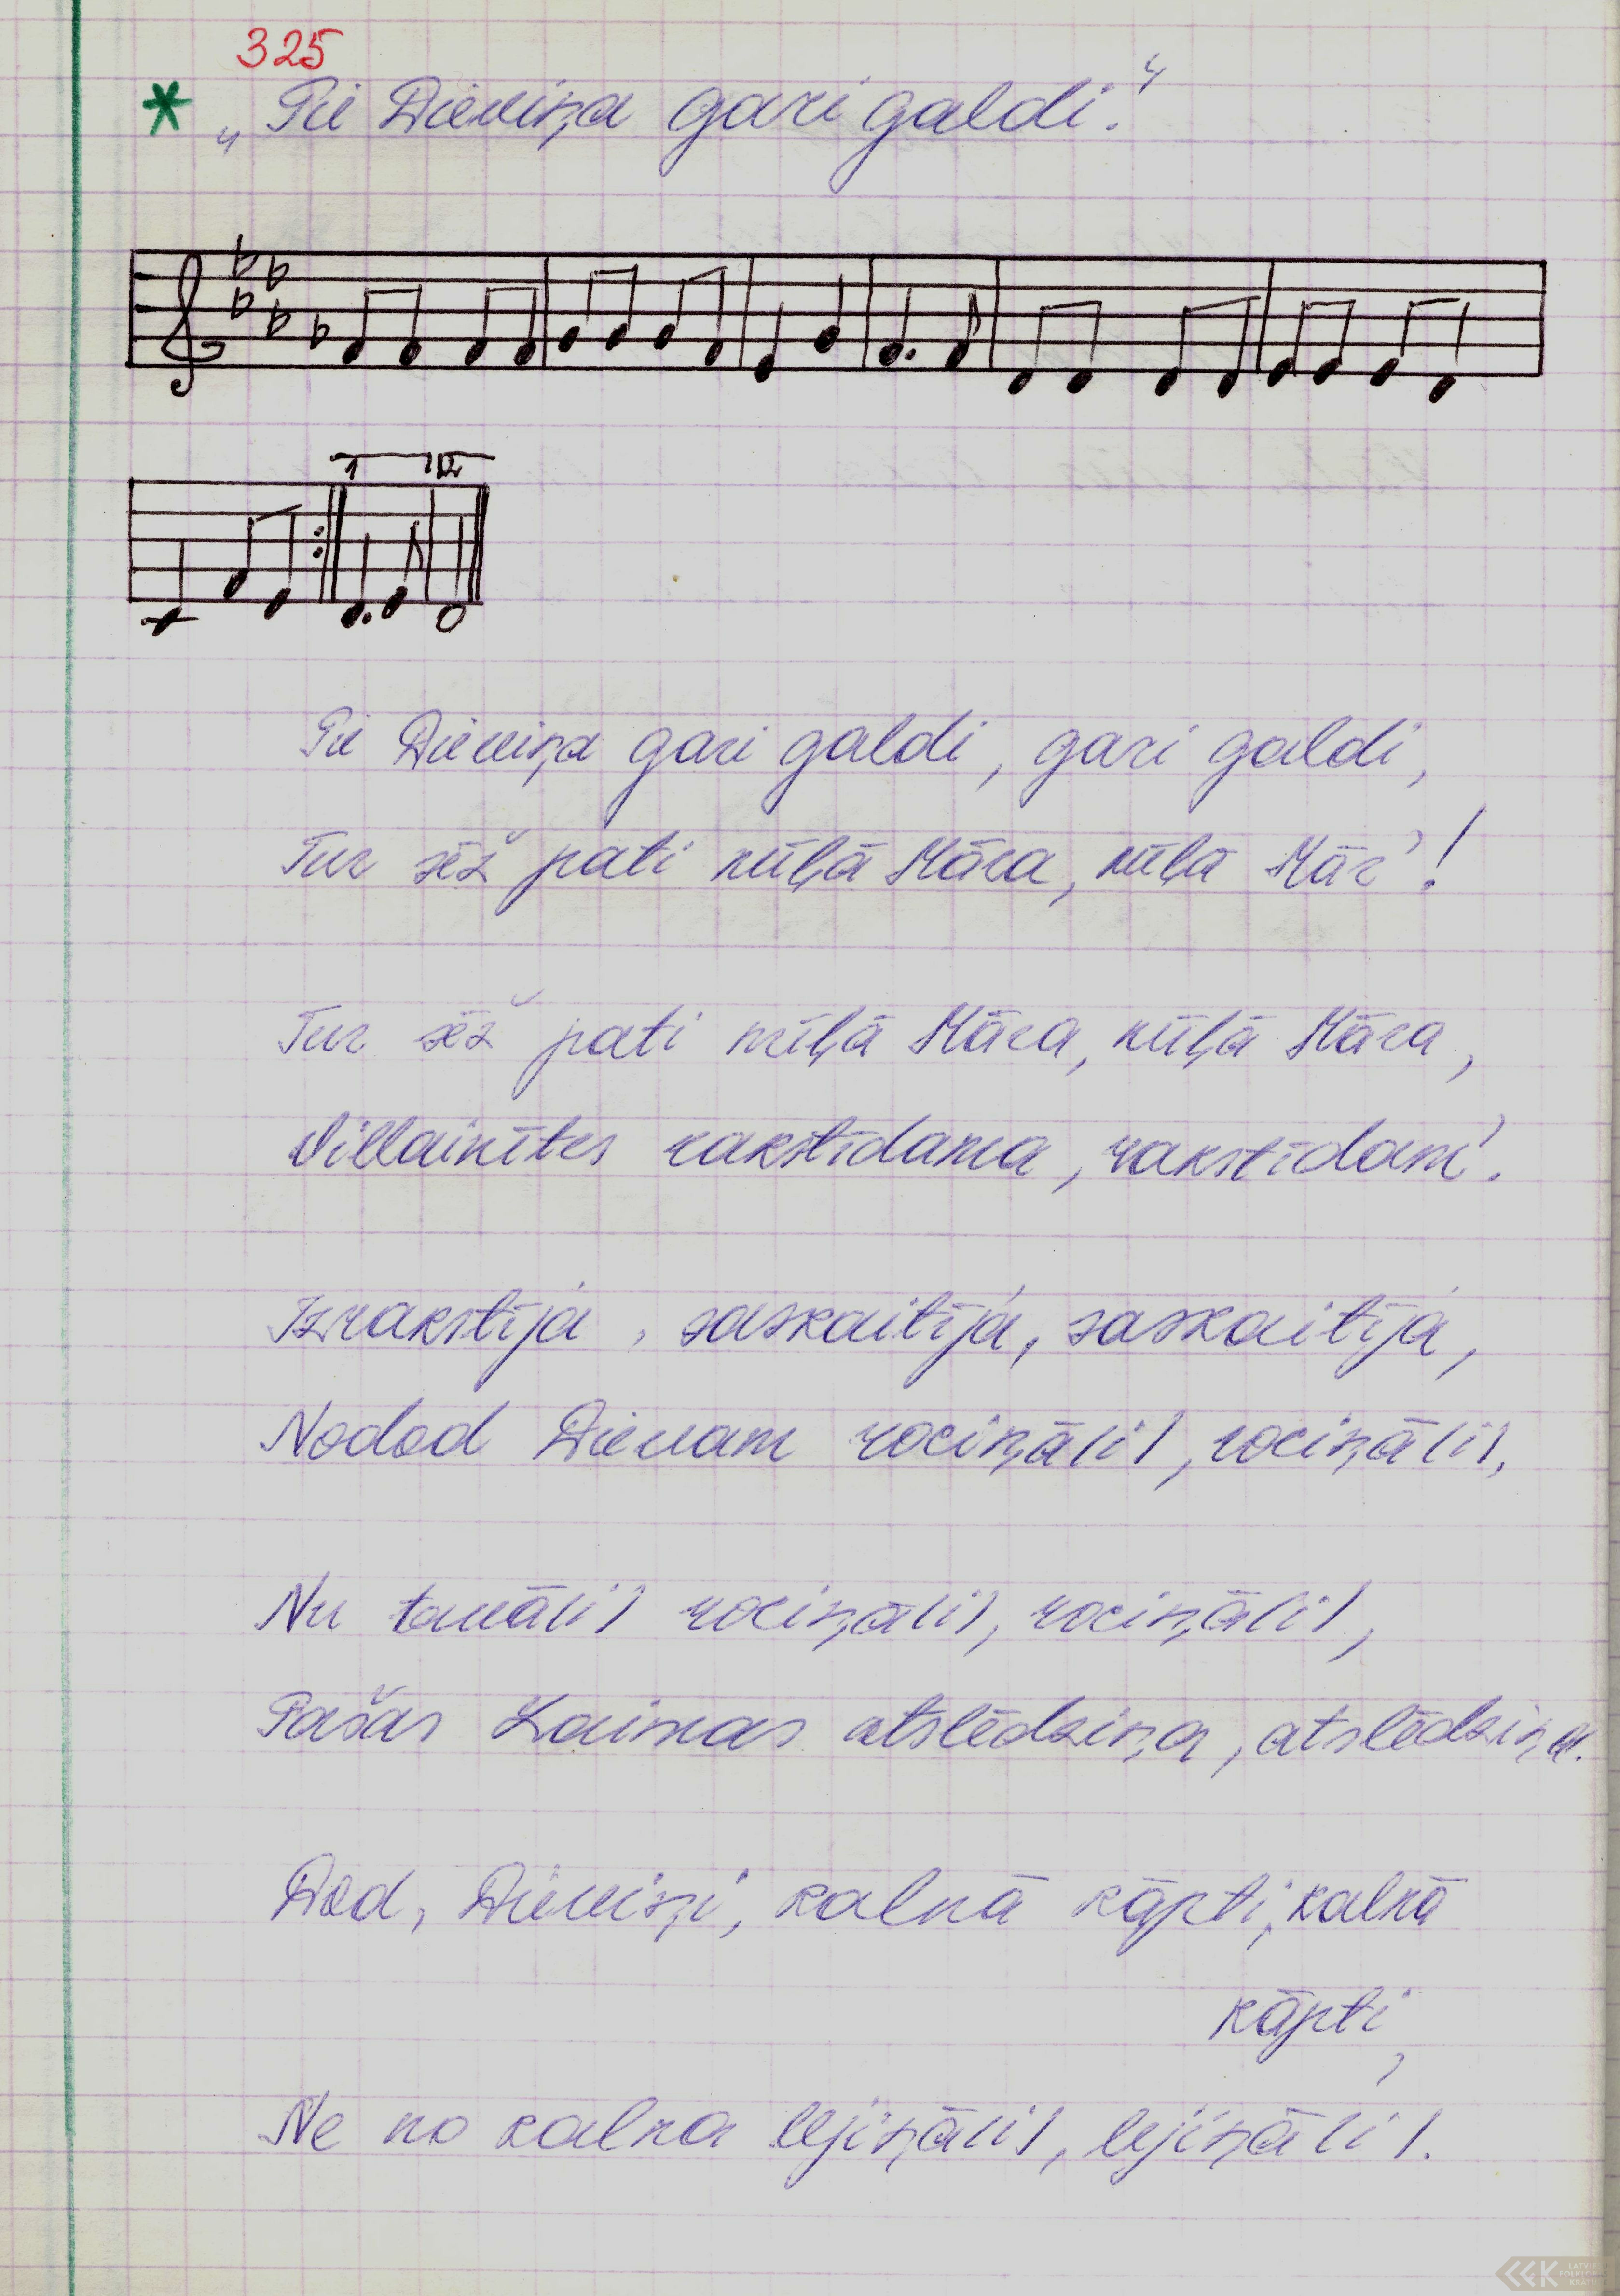 325
* „Pie Dieviņa gari galdi."
1 2
Pie Dieviņa gari galdi, gari galdi,
Tur sēž pati mīļā Māra, mīļā Mār'!
Tur sēž pati mīļā Māra, mīļā Māra,
Villainītes rakstīdama, rakstīdam'.
Izrakstīja, saskaitīja, saskaitīja,
Nodod Dievam rociņā(i), rociņā(i),
Nu tavā(i) rociņā(i), rociņā(i),
Pašas Laimas atslēdziņa, atslēdziņa.
Dod, Dieviņi, kalnā kāpti, kalnā
kāpti,
Ne no kalna lejiņā(i), lejiņā(i).
LATVIEŠU
FOLKLORAS
KRĀTUVE